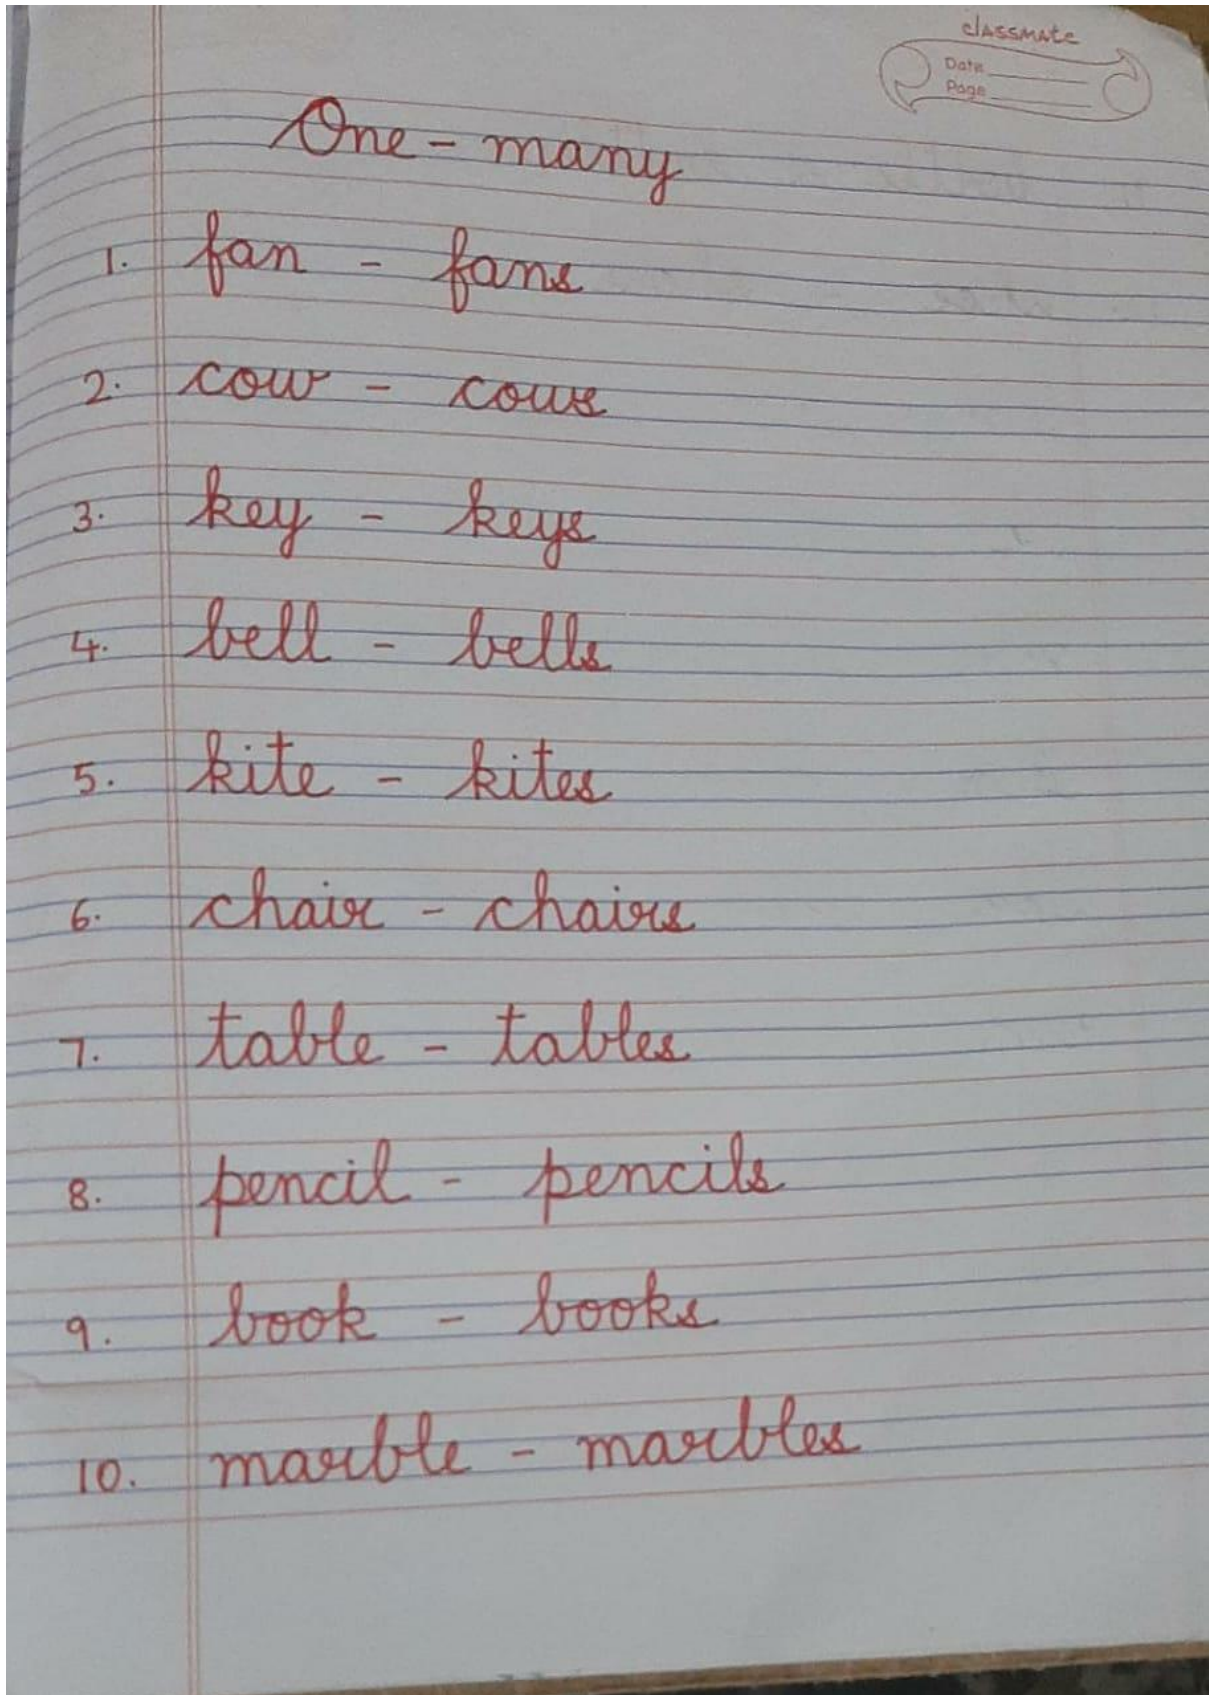 classmate
Date
Page
One - many
1. fan - fans
2. cow - cows
3. key - keys
4. bell - bells
5. kite - kites
6. chair - chairs
7. table - tables
8. pencil - pencils
9. book - books
10. marble - marbles